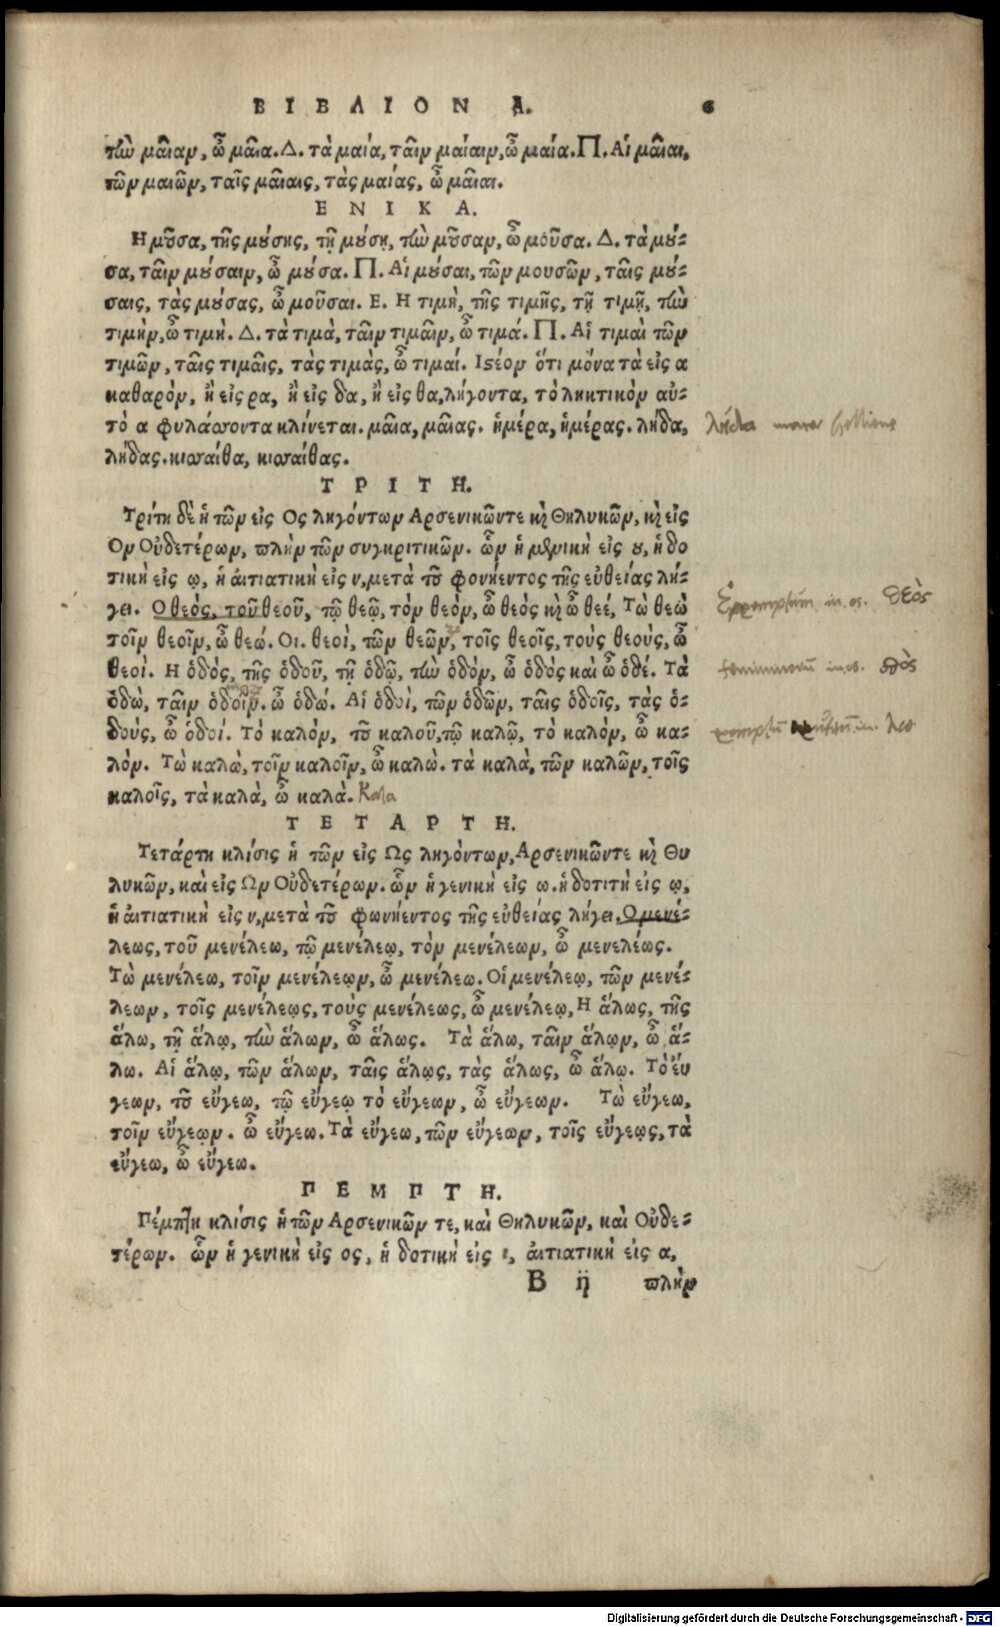 ΒΙΒΛΙΟΝ Α. 6
τὴν μαῖαν, ὦ μαῖα. Δ. τὰ μαία, ταῖν μαίαιν, ὦ μαία. Π. Αἱ μαῖαι,
τῶν μαιῶν, ταῖς μαίαις, τὰς μαίας, ὦ μαῖαι.
ΕΝΙΚΑ.
Η μοῦσα, τῆς μούσης, τῇ μούσῃ, τὴν μοῦσαν, ὦ μοῦσα. Δ. τὰ μού-
σα, ταῖν μούσαιν, ὦ μούσα. Π. Αἱ μούσαι, τῶν μουσῶν, ταῖς μού-
σαις, τὰς μούσας, ὦ μοῦσαι. Ε. Η τιμὴ, τῆς τιμῆς, τῇ τιμῇ, τὴν
τιμὴν, ὦ τιμὴ. Δ. τὰ τιμὰ, ταῖν τιμαῖν, ὦ τιμά. Π. Αἱ τιμαὶ τῶν
τιμῶν, ταῖς τιμαῖς, τὰς τιμὰς, ὦ τιμαί. Ιστέον ὅτι μόνα τὰ εἰς α
καθαρὸν, ἢ εἰς ρα, ἢ εἰς δα, ἢ εἰς θα, λήγοντα, τὸ ληκτικὸν αὐ-
τὸ α φυλάττοντα κλίνεται. μαῖα, μαῖας. ἡμέρα, ἡμέρας. λήδα, λήδα
λήδας. κισσαίθα, κισσαίθας.
ΤΡΙΤΗ.
Τρίτη δὲ ἡ τῶν εἰς Ος ληγόντων Αρσενικῶν τε καὶ Θηλυκῶν, καὶ εἰς
Ον Οὐδετέρων, πλὴν τῶν συγκριτικῶν. ὧν ἡ γενικὴ εἰς ου, ἡ δο
τικὴ εἰς ῳ, ἡ αἰτιατικὴ εἰς ν, μετὰ τοῦ φονήεντος τῆς εὐθείας λή-
γει. Ο θεός, τοῦ θεοῦ, τῷ θεῷ, τὸν θεὸν, ὦ θεὸς καὶ ὦ θεέ, Τὼ θεὼ in os. θεὸς
τοῖν θεοῖν, ὦ θεώ. Οι. θεοὶ, τῶν θεῶν, τοῖς θεοῖς, τοὺς θεοὺς, ὦ
θεοὶ. Η ὁδὸς, τῆς ὁδοῦ, τῇ ὁδῷ, τὴν ὁδὸν, ὦ ὁδὸς καὶ ὦ ὁδέ. Τὰ femininorū in os. ὁδὸς
ὁδὼ, ταῖν ὁδοῖν. ὦ ὁδώ. Αἱ ὁδοὶ, τῶν ὁδῶν, ταῖς ὁδοῖς, τὰς ὁ-
δοὺς, ὦ ὁδοί. Τὸ καλὸν, τοῦ καλοῦ, τῷ καλῷ, τὸ καλὸν, ὦ κα-
λὸν. Τὼ καλὼ, τοῖν καλοῖν, ὦ καλὼ. τὰ καλὰ, τῶν καλῶν, τοῖς
καλοῖς, τὰ καλὰ, ὦ καλὰ.
ΤΕΤΑΡΤΗ.
Τετάρτη κλίσις ἡ τῶν εἰς Ως ληγόντων, Αρσενικῶν τε καὶ Θυ
λυκῶν, καὶ εἰς Ων Οὐδετέρων. ὧν ἡ γενικὴ εἰς ω. ἡ δοτιτὴ εἰς ῳ,
ἡ αἰτιατικὴ εἰς ν, μετὰ τοῦ φωνήεντος τῆς εὐθείας λήγει. Ο μενέ-
λεως, τοῦ μενέλεω, τῷ μενέλεῳ, τὸν μενέλεων, ὦ μενελέως.
Τὼ μενέλεω, τοῖν μενέλεῳν, ὦ μενέλεω. Οἱ μενέλεῳ, τῶν μενέ-
λεων, τοῖς μενέλεῳς, τοὺς μενέλεως, ὦ μενέλεῳ, Η ἅλως, τῆς
ἅλω, τῇ ἅλῳ, τὴν ἅλων, ὦ ἅλως. Τὰ ἅλω, ταῖν ἅλῳν, ὦ ἅ-
λω. Αἱ ἅλῳ, τῶν ἅλων, ταῖς ἅλῳς, τὰς ἅλως, ὦ ἅλῳ. Τὸ εὔ
γεων, τοῦ εὔγεω, τῷ εὔγεῳ τὸ εὔγεων, ὦ εὔγεων. Τὼ εὔγεω,
τοῖν εὔγεῳν. ὦ εὔγεω. Τὰ εὔγεω, τῶν εὔγεων, τοῖς εὔγεῳς, τὰ
εὔγεω, ὦ εὔγεω.
ΠΕΜΠΤΗ.
Πέμπτη κλίσις ἡ τῶν Αρσενικῶν τε, καὶ Θηλυκῶν, καὶ Οὐδε-
τέρων. ὧν ἡ γενικὴ εἰς ος, ἡ δοτικὴ εἰς ι, αἰτιατικὴ εἰς α,
B ij πλὴν
Digitalisierung gefördert durch die Deutsche Forschungsgemeinschaft - DFG